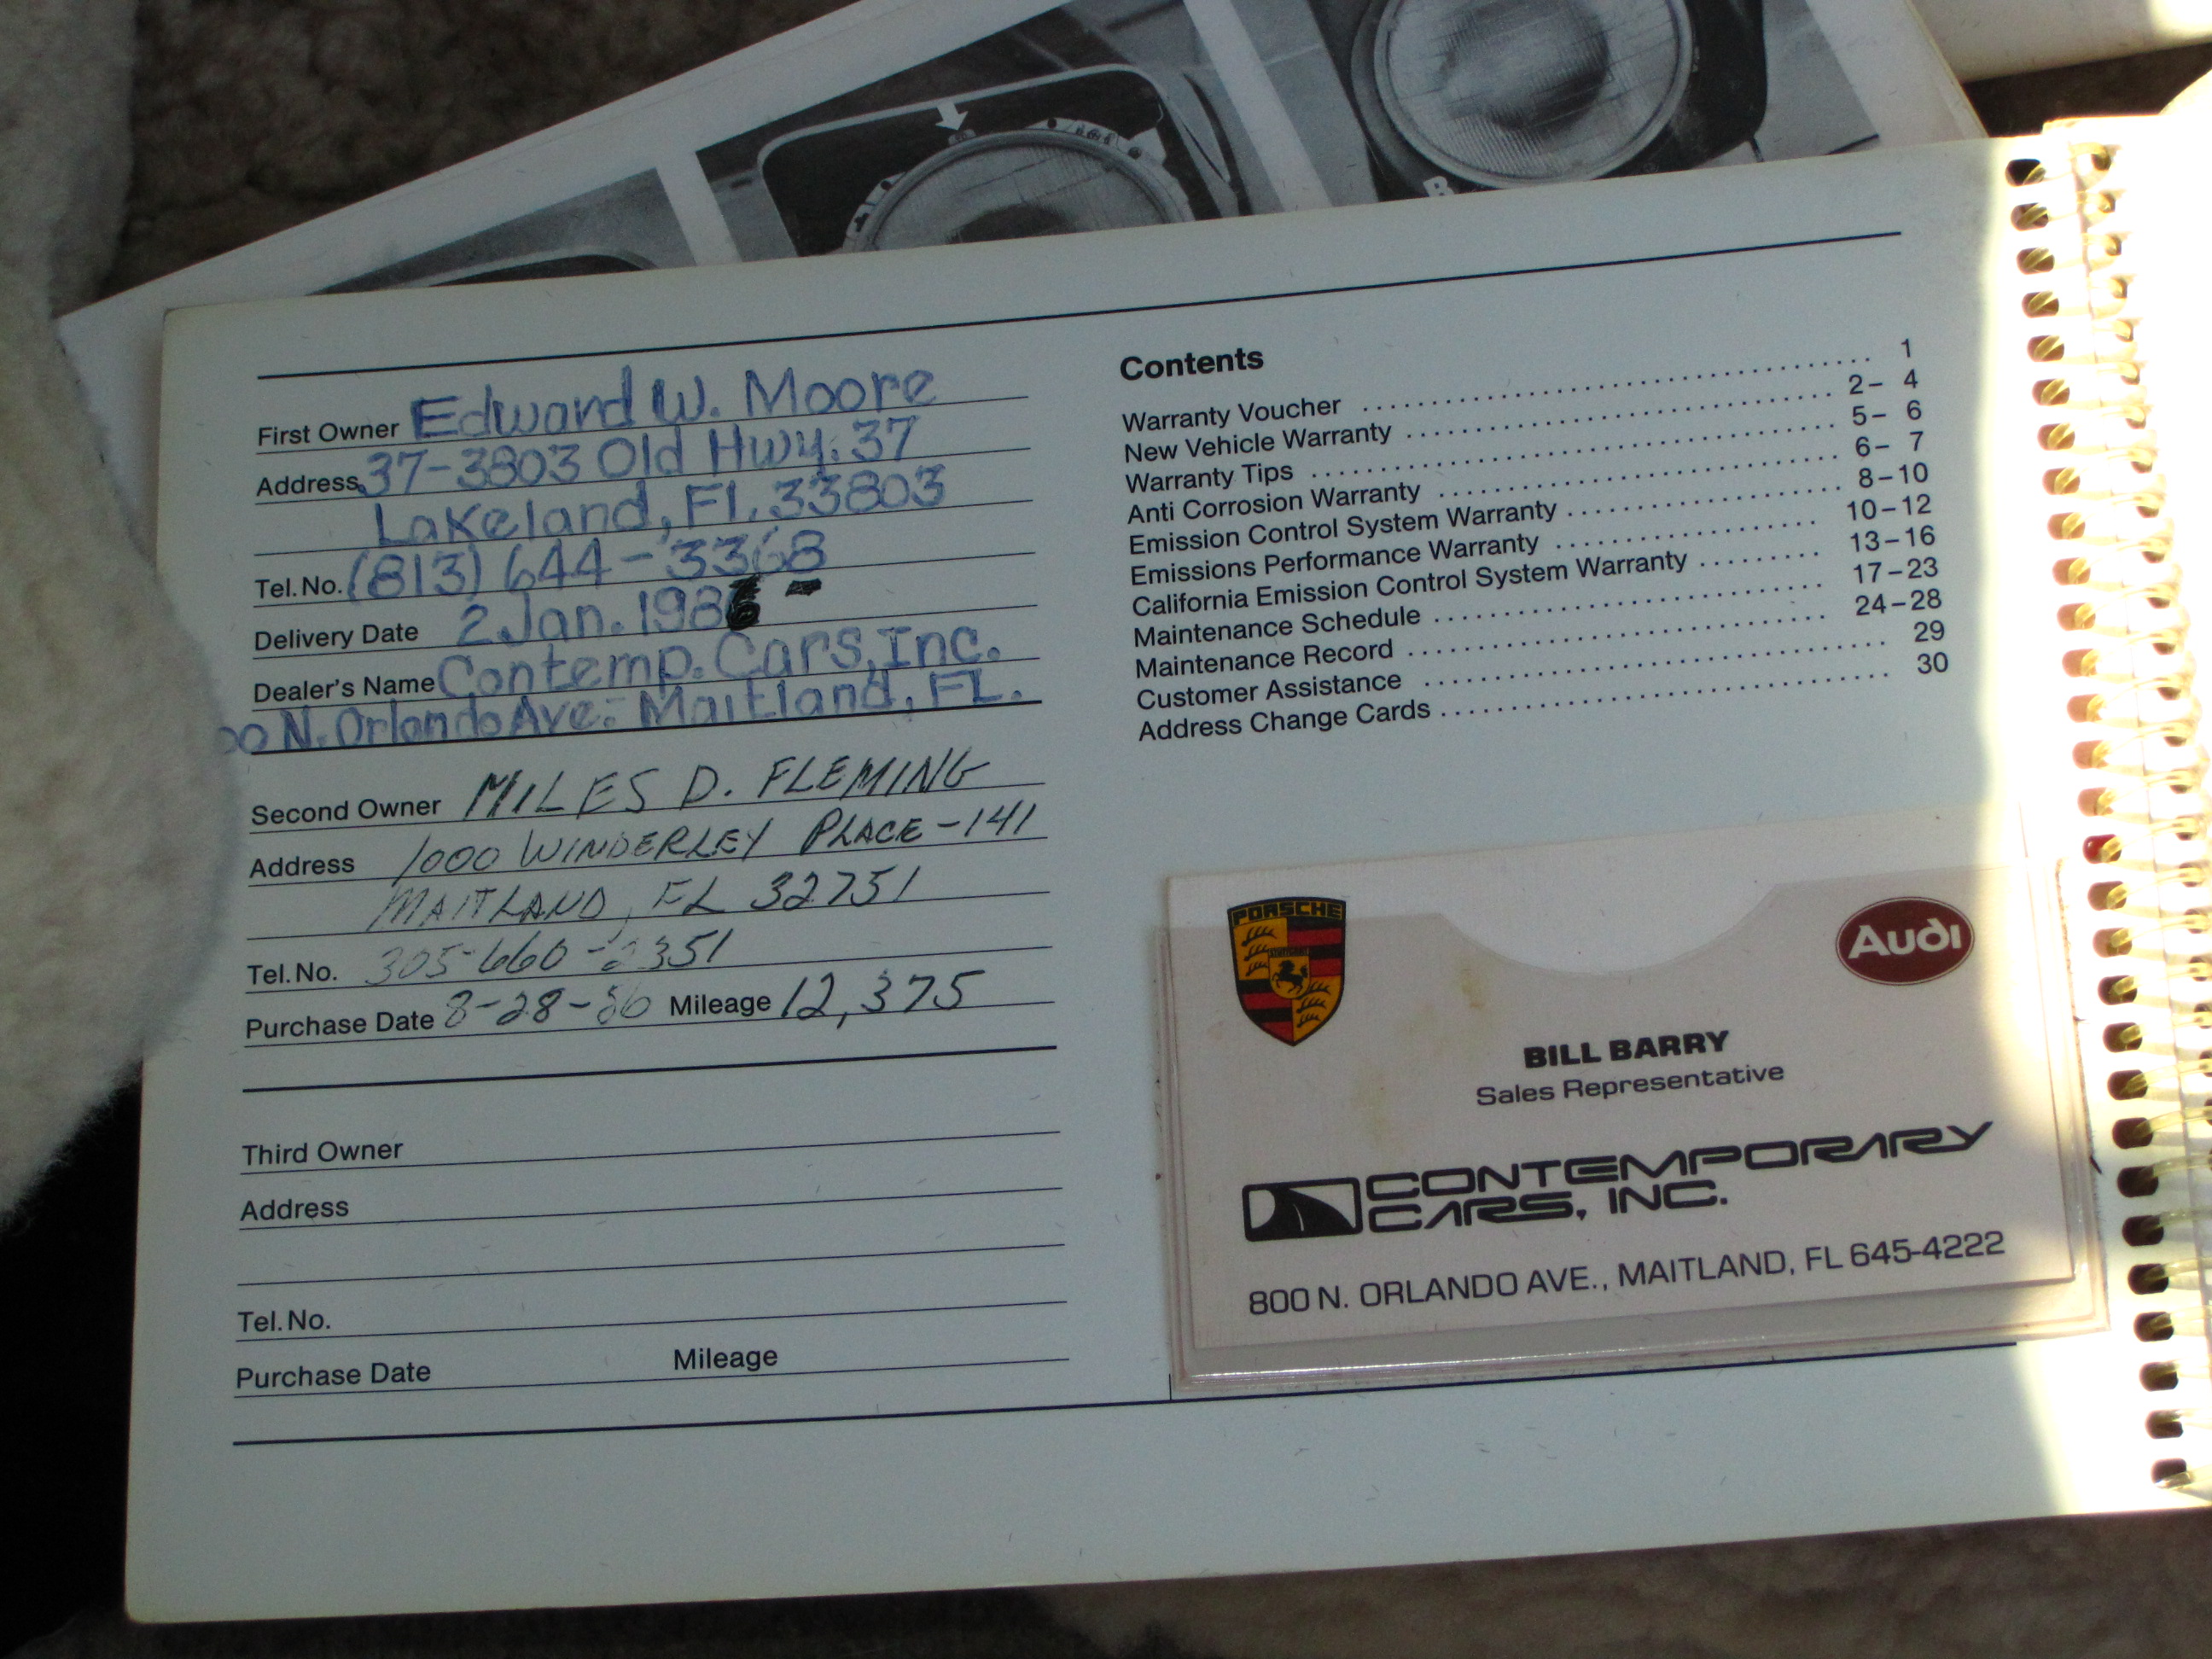 B
First Owner Edward W. Moore
Address 37-3803 Old Hwy. 37
Lakeland, Fl. 33803
Tel. No. (813) 644-3368
Delivery Date 2 Jan. 1986 -
Dealer's Name Contemp. Cars, Inc.
00 N. Orlando Ave. - Maitland, FL.
Second Owner MILES D. FLEMING
Address 1000 WINDERLEY PLACE-141
MAITLAND, FL 32751
Tel. No. 305-660-2351
Purchase Date 8-28-86 Mileage 12,375
Third Owner
Address
Tel. No.
Purchase Date Mileage
Contents
Warranty Voucher ........ 1
New Vehicle Warranty ........ 2– 4
Warranty Tips ........ 5– 6
Anti Corrosion Warranty ........ 6– 7
Emission Control System Warranty ........ 8–10
Emissions Performance Warranty ........ 10–12
California Emission Control System Warranty ........ 13–16
Maintenance Schedule ........ 17–23
Maintenance Record ........ 24–28
Customer Assistance ........ 29
Address Change Cards ........ 30
PORSCHE
STUTTGART
Audi
BILL BARRY
Sales Representative
CONTEMPORARY
CARS, INC.
800 N. ORLANDO AVE., MAITLAND, FL 645-4222